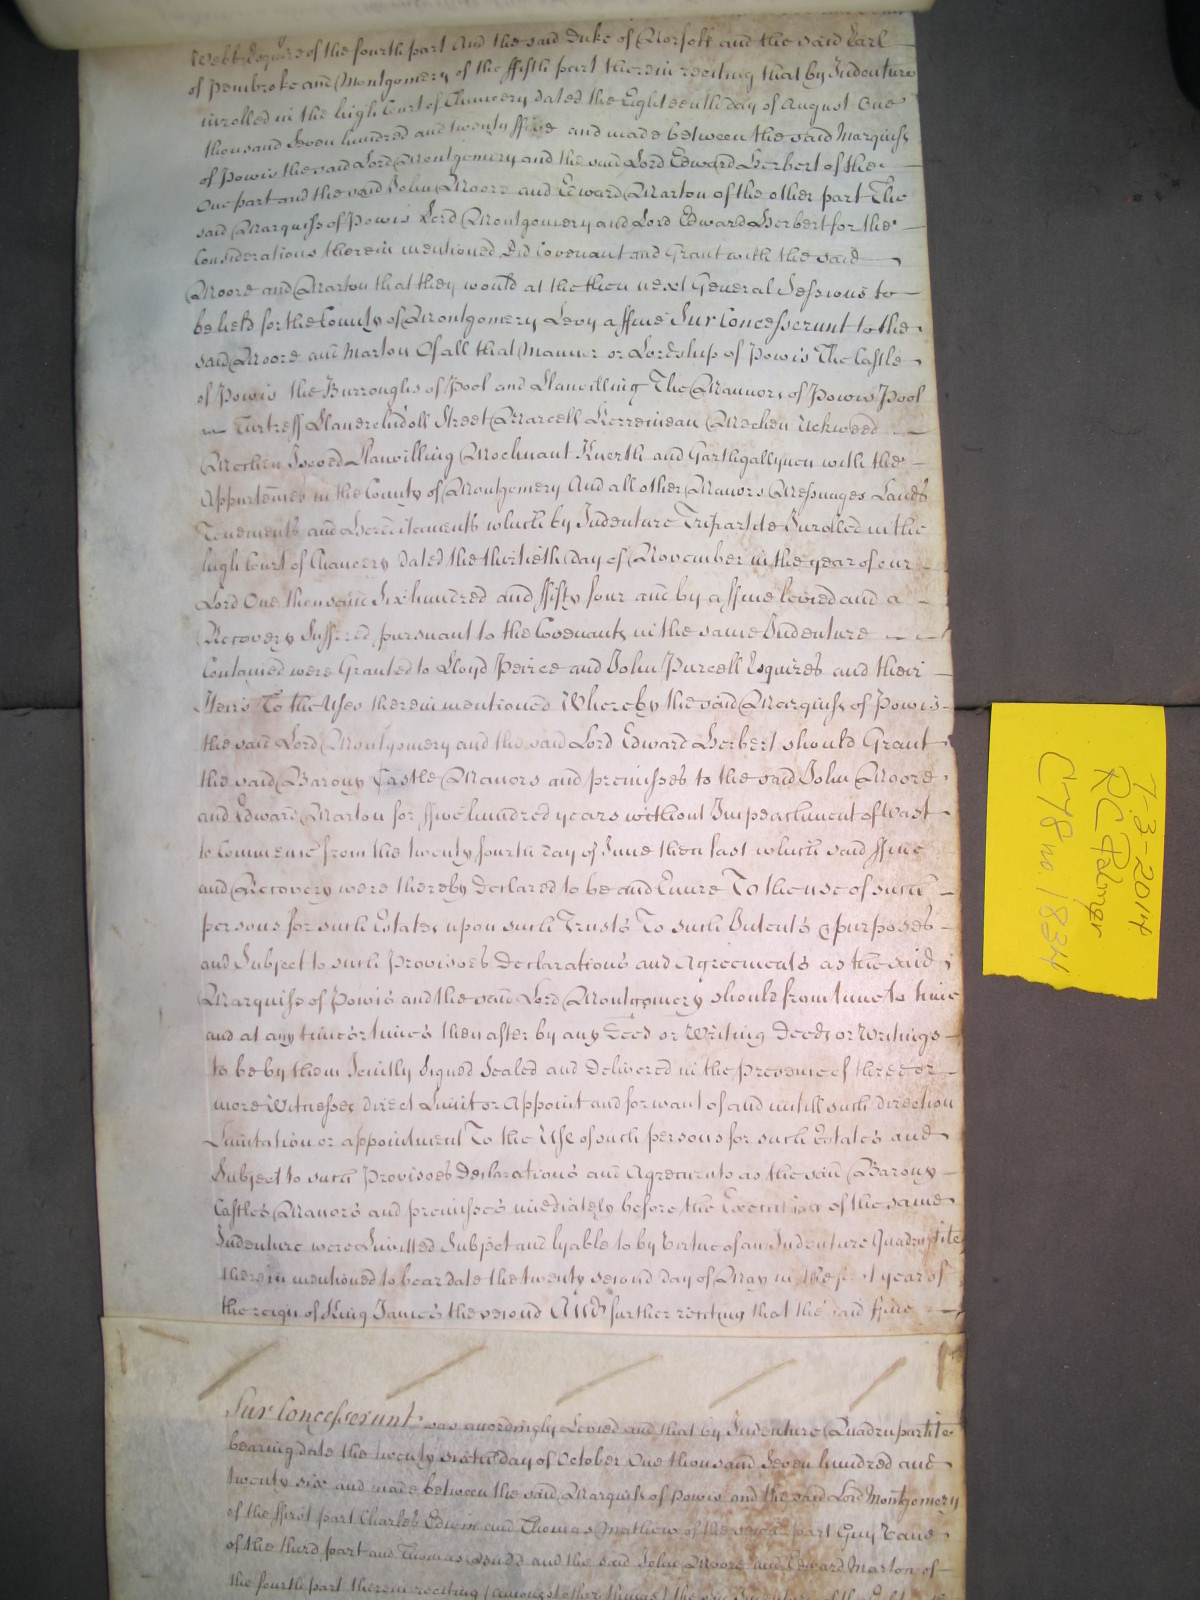 Webb Esquire of the fourth part And the said Duke of Norfolk and the said Earl
of Pembroke and Montgomery of the ffifth part therein reciting that by Indenture
inrolled in the high Court of Chancery dated the Eighteenth day of August One
thousand Seven hundred and twenty ffive and made between the said Marquiss
of Powis the said Lord Montgomery and the said Lord Edward Herbert of the
One part and the said John Moore and Edward Marton of the other part The
said Marquiss of Powis Lord Montgomery and Lord Edward Herbert for the
Considerations therein mentioned Did Covenant and Grant with the said
Moore and Marton that they would at the then next General Sessions to
be held for the County of Montgomery Levy a ffine Sur Concesserunt to the
said Moore and Marton Of all that Mannor or Lordship of Powis The Castle
of Powis the Burroughs of Pool and Llanvilling The Mannors of Powis Pool
Street Marcell Mechen Uchwoed
Mechen Iscoed Llanvilling Mochnant Kuerth and Garthgallynen with the
Appurtences in the County of Montgomery And all other Manors Messuages Lands
Tenements and Hereditaments which by Indenture Tripartite Inrolled in the
high Court of Chancery dated the thirtieth day of November in the year of our
Lord One thousand Six hundred and ffifty four and by a ffine levied and a
Recovery Suffered pursuant to the Covenants in the same Indenture
Contained were Granted to Lloyd Peirce and John Purcell Esquires and their
Heirs To the Uses therein mentioned Whereby the said Marquiss of Powis
the said Lord Montgomery and the said Lord Edward Herbert should Grant
the said Barony Castle Manors and premisses to the said John Moore
and Edward Marton for ffive hundred years without Impeachment of Wast
to Commence from the twenty fourth day of June then last which said ffine
and Recovery were thereby Declared to be and Enure To the use of such
persons for such Estates upon such Trusts To such Intents & purposes
and Subject to such Provisoes Declarations and Agreements as the said
Marquiss of Powis and the said Lord Montgomery should from time to time
and at any time or times then after by any Deed or Writing Deeds or Writings
to be by them Jointly Signed Sealed and Delivered in the presence of three or
more Witnesses direct Limit or Appoint and for want of and untill such direction
Limitation or appointment To the Use of such persons for such Estates and
Subject to such Provisoes Declarations and Agreements as the said Barony
Castles Manors and premisses imediately before the Execution of the same
Indenture were Limitted Subject and lyable to by Vertue of an Indenture Quadrupartite
therein mentioned to bear date the twenty second day of May in the first year of
the reign of King James the second And further reciting that the said ffine
Sur Concesserunt was accordingly Levied and that by Indenture Quadrupartite
bearing date the twenty sixth day of October One thousand Seven hundred and
twenty six and made between the said Marquiss of Powis and the said Lord Montgomery
of the ffirst part Charles Edwin and Thomas Mathews of the second part Guy Vane
of the third part and Thomas and the said John Moore and Edward Marton of
the fourth part therein reciting (amongst other things) the
7-3-2014
RC Palmer
C 78 no 1834